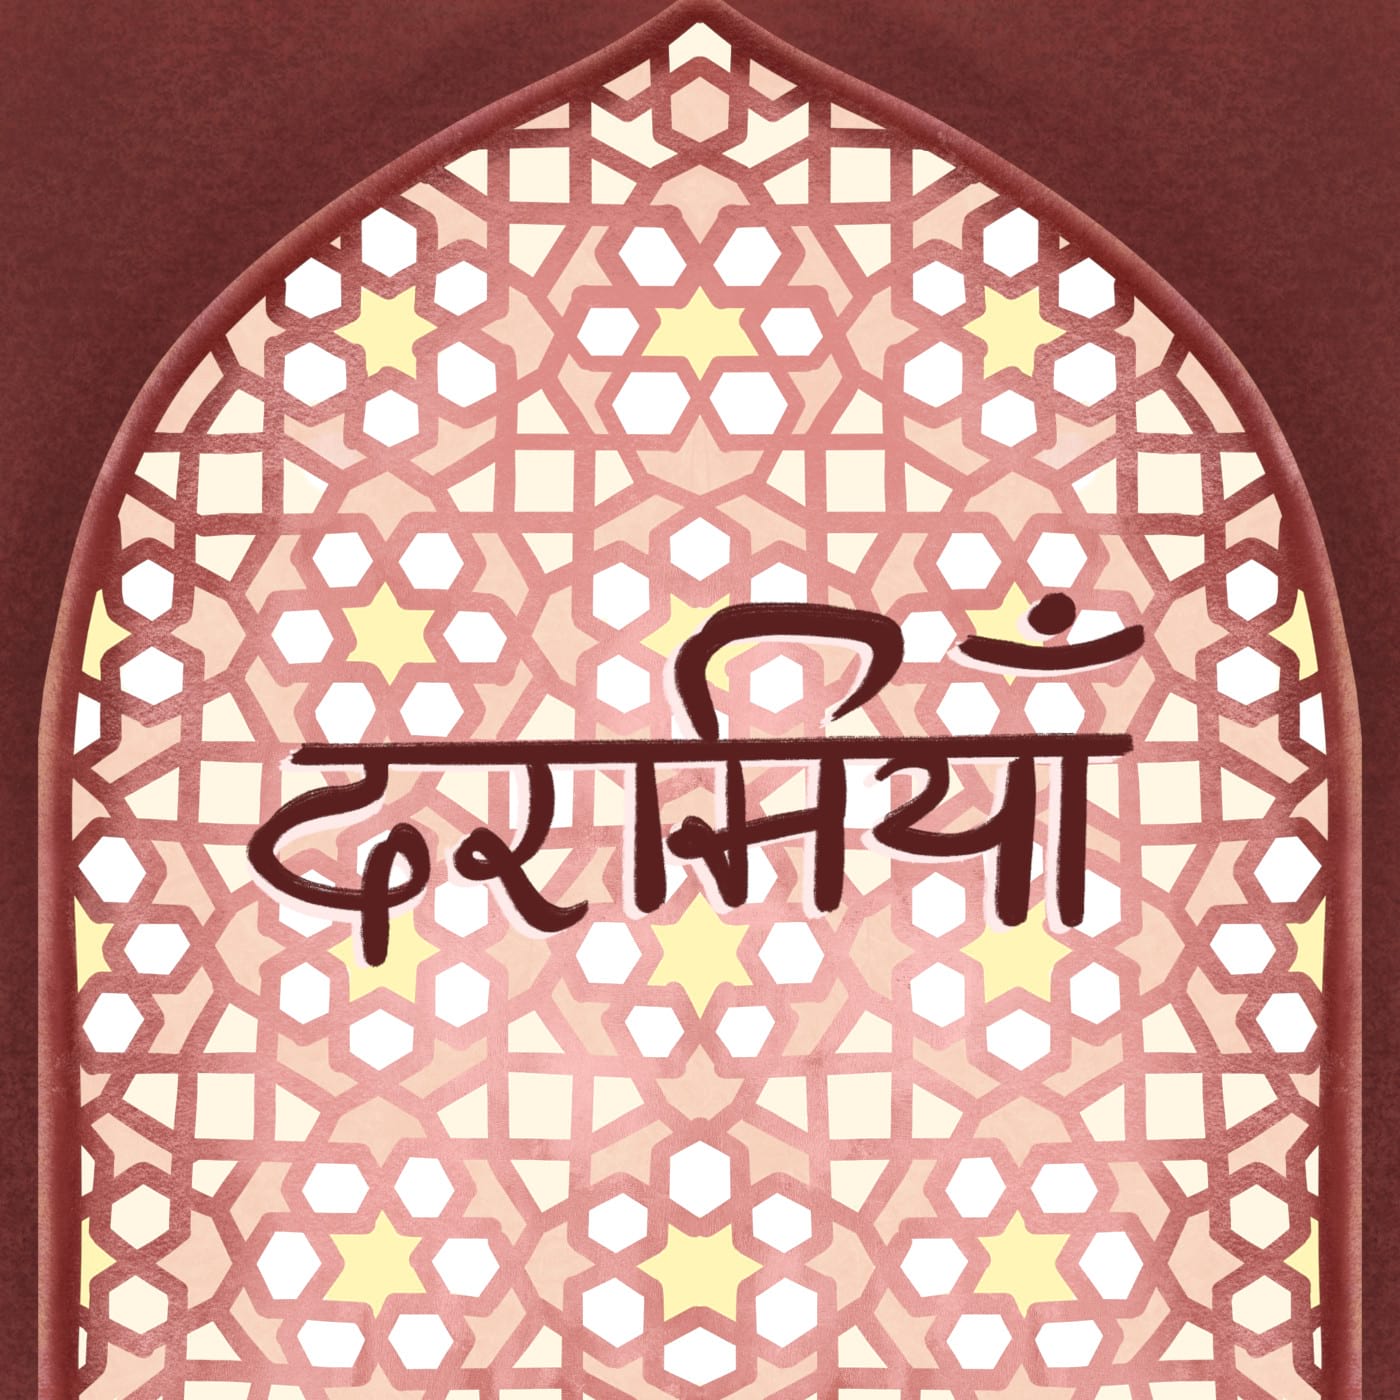 दरमियाँ